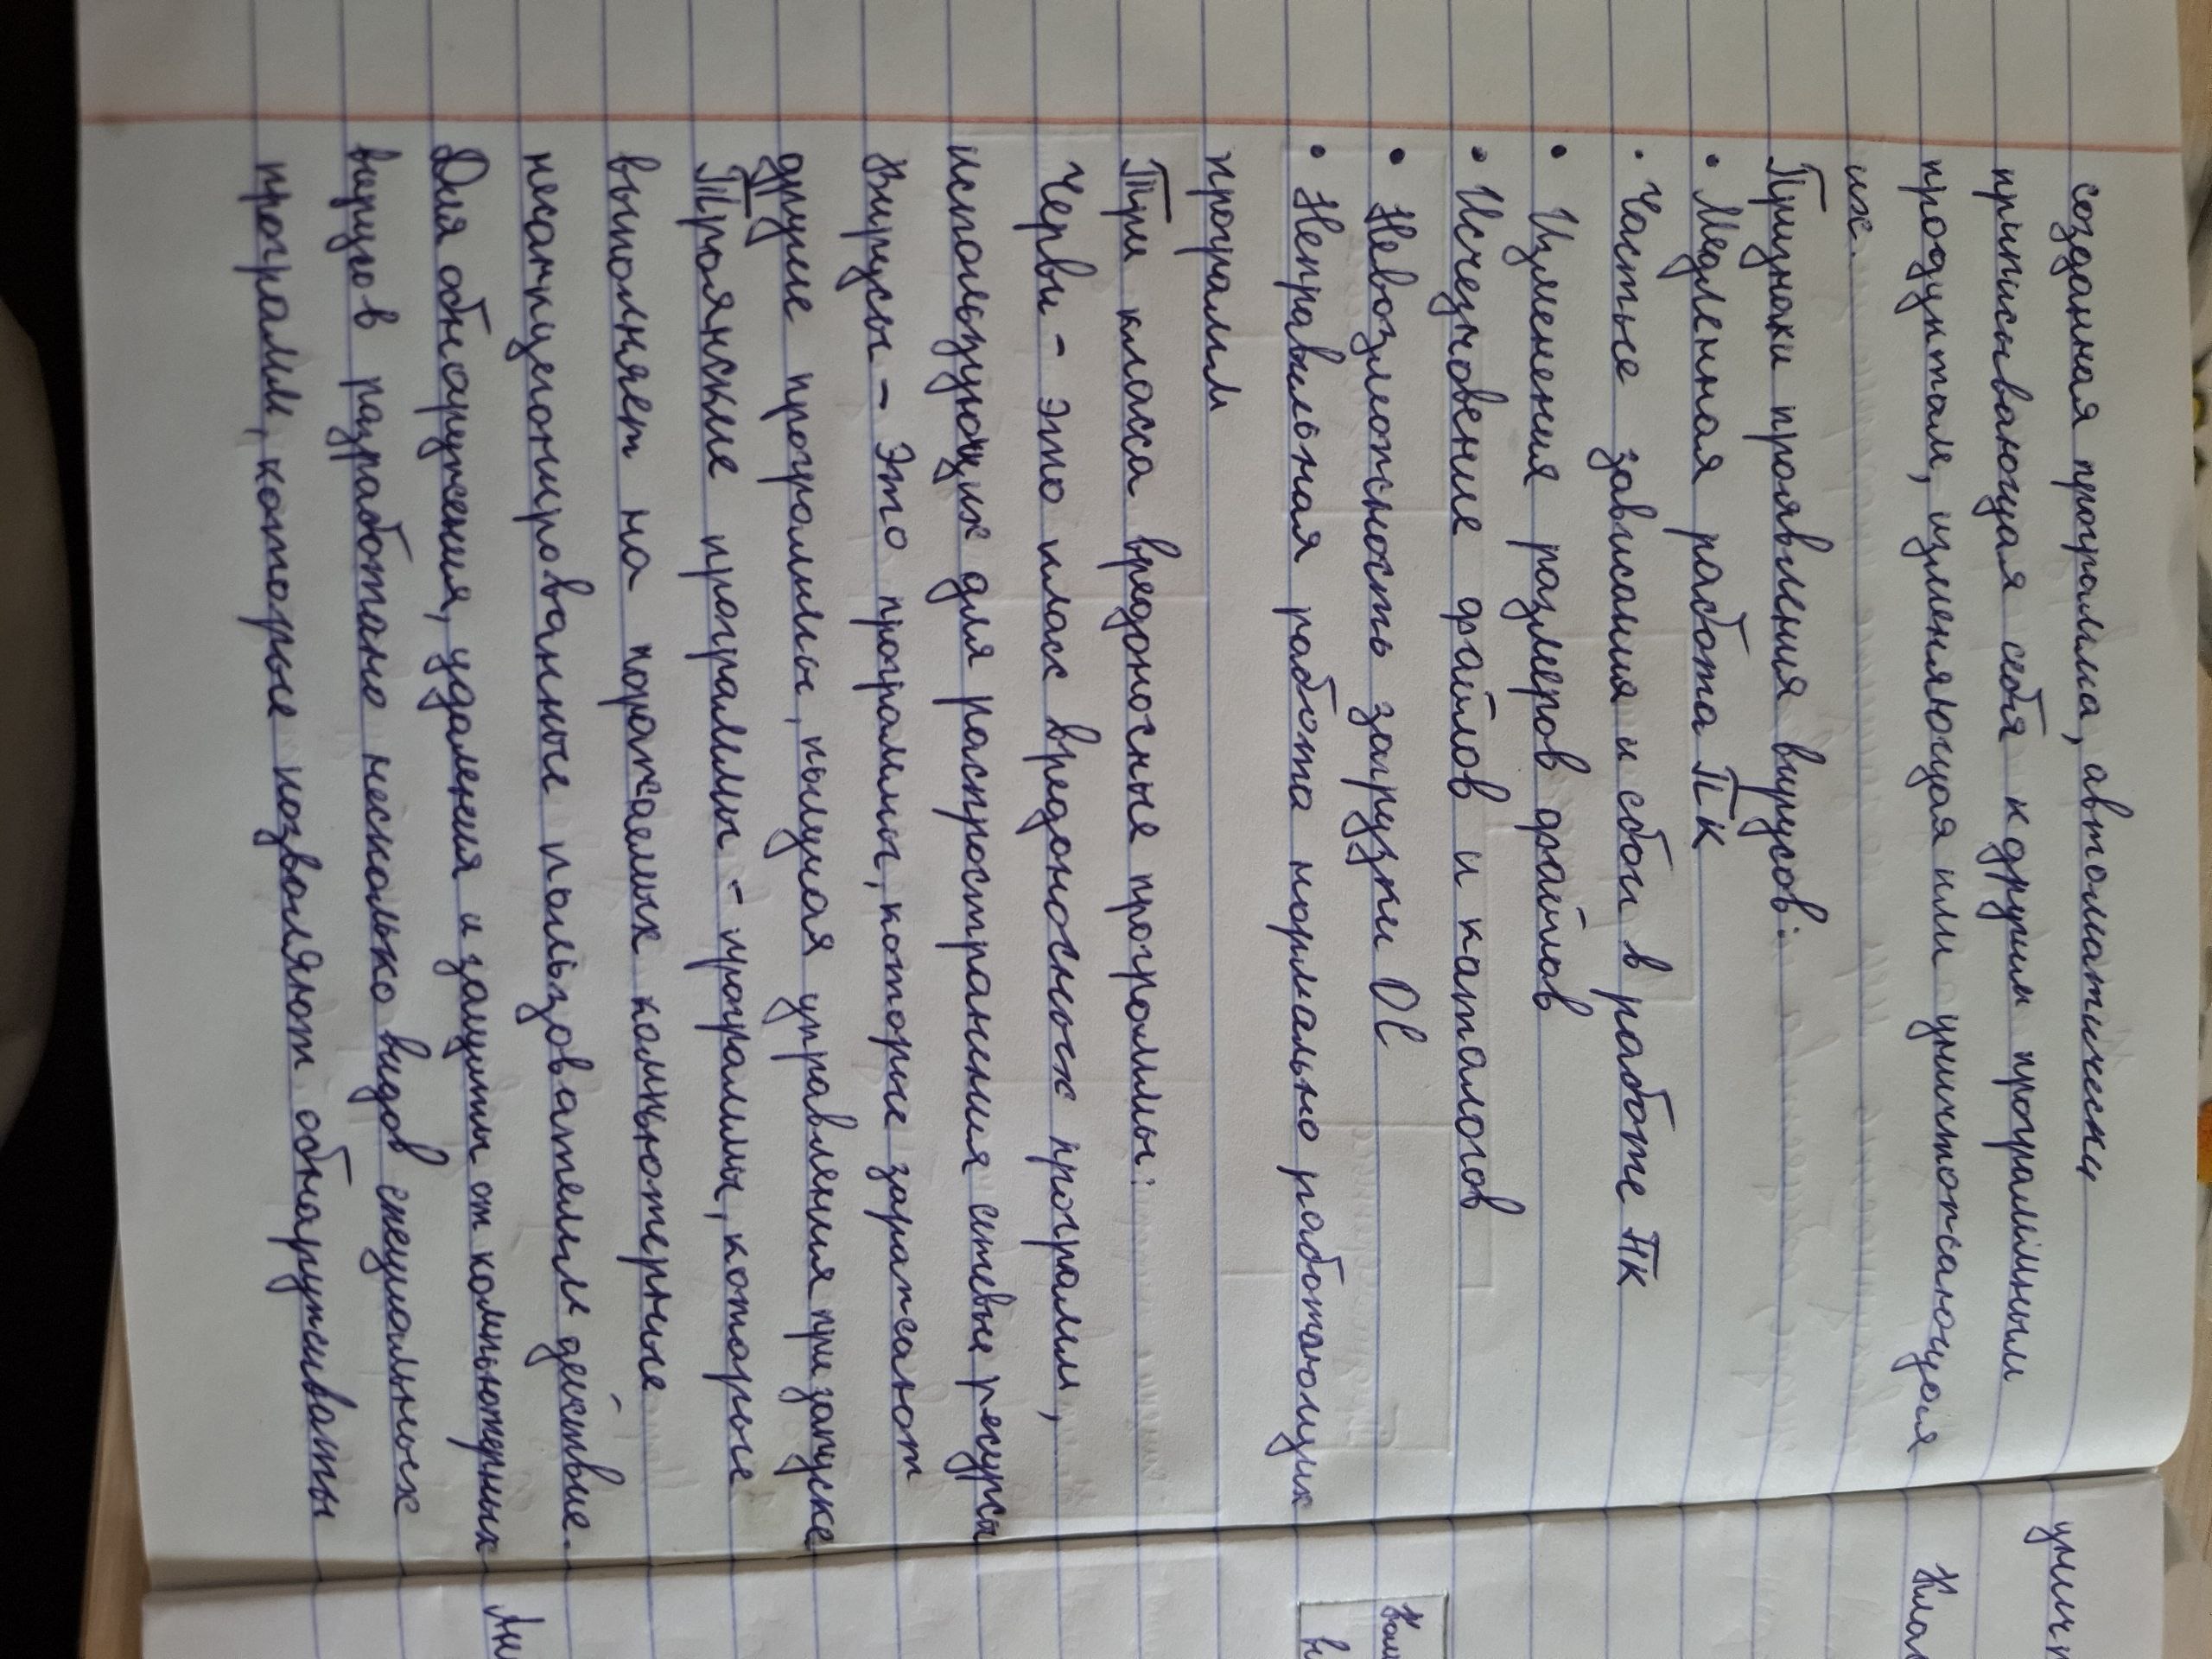 созданная программа, автоматически
приписывающая себя к другим программным
продуктам, изменяющая или уничтожающая
их.
Признаки проявления вирусов:
• Медленная работа ПК
• Частые зависания и сбои в работе ПК
• Изменения размеров файлов
• Исчезновение файлов и каталогов
• Невозможность загрузки ОС
• Неправильная работа нормально работающих
программ
Три класса вредоносные программы:
Черви - это класс вредоносных программ,
использующих для распространения сетевые ресурсы
Вирусы - это программы, которые заражают
другие программы, получая управления при запуске
Троянские программы - программы, которые
выполняет на поражаемых компьютерные
несанкционированные пользователем действие.
Для обнаружения, удаления и защиты от компьютерных
вирусов разработано несколько видов специальных
программ, которые позволяют обнаруживать
уничт
Клас
Ком
Ан